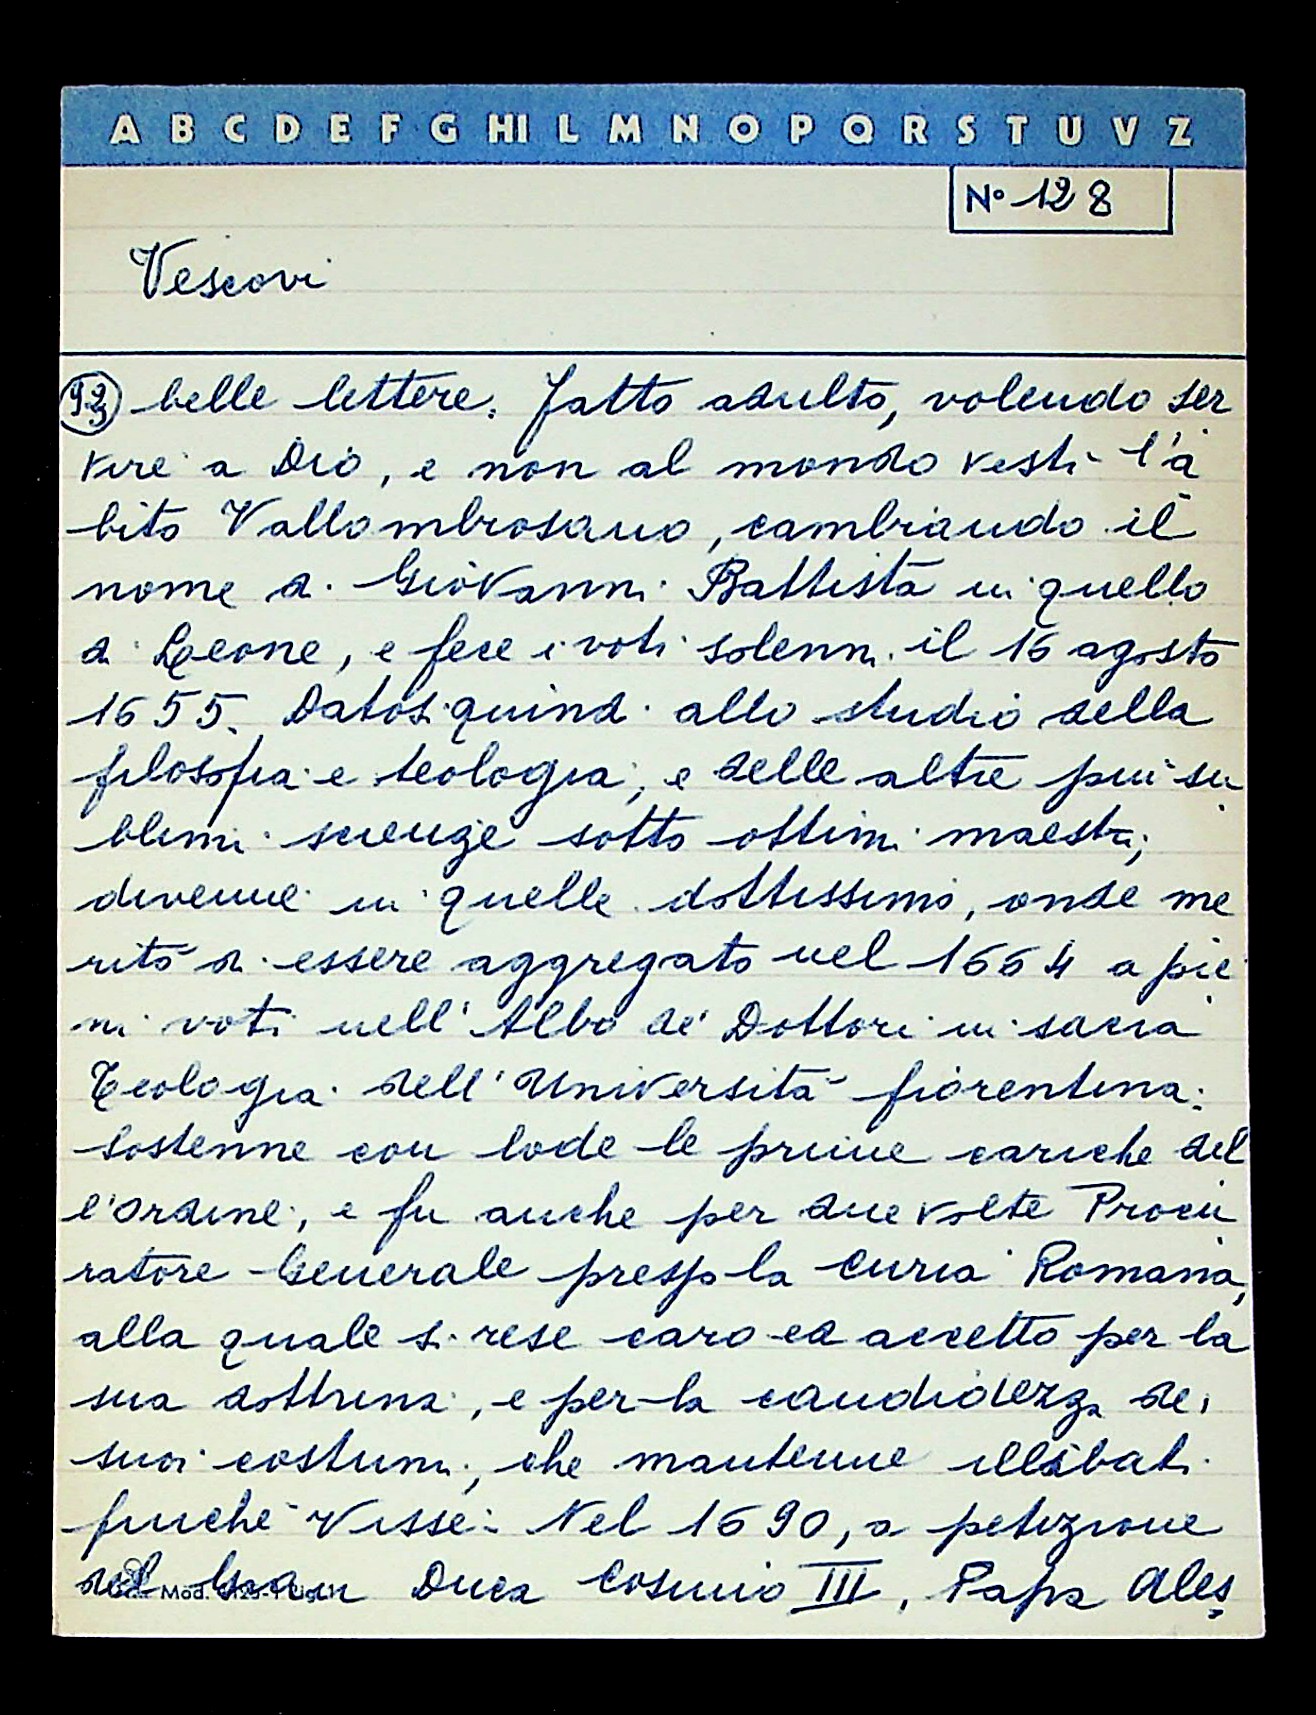 A B C D E F G HI L M N O P Q R S T U V Z
No 128
Vescovi
belle lettere. Fatto adulto, volendo ser
vire a Dio, e non al mondo vestì l'a
bito Vallombrosano, cambiando il
nome di Giovanni Battista in quello
di Leone, e fece i voti solenni il 16 agosto
1655. Datosi quindi allo studio della
filosofia e teologia, e delle altre più su
blimi scienze sotto ottimi maestri,
divenne in quelle dottissimo, onde me
ritò di essere aggregato nel 1664 a pie
ni voti nell'Albo de' Dottori in sacra
Teologia dell'Università fiorentina.
Sostenne con lode le prime cariche del
l'ordine, e fu anche per due volte Procu
ratore Generale presso la Curia Romana,
alla quale si rese caro ed accetto per la
sua dottrina, e per la candidezza dei
suoi costumi, che mantenne illibati
finchè visse. Nel 1690, a petizione
del Gran Duca Cosimo III, Papa Ales
Mod.